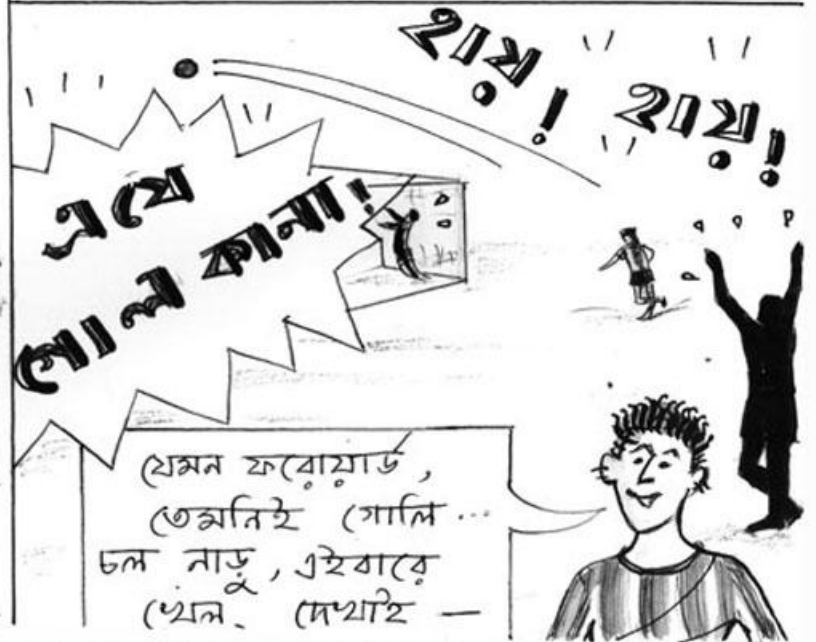 হায়! হায়!
এযে
গোল কানা!
যেমন ফরোয়ার্ড,
তেমনিই গোলি ...
চল নাড়ু, এইবারে
খেল. দেখাই —